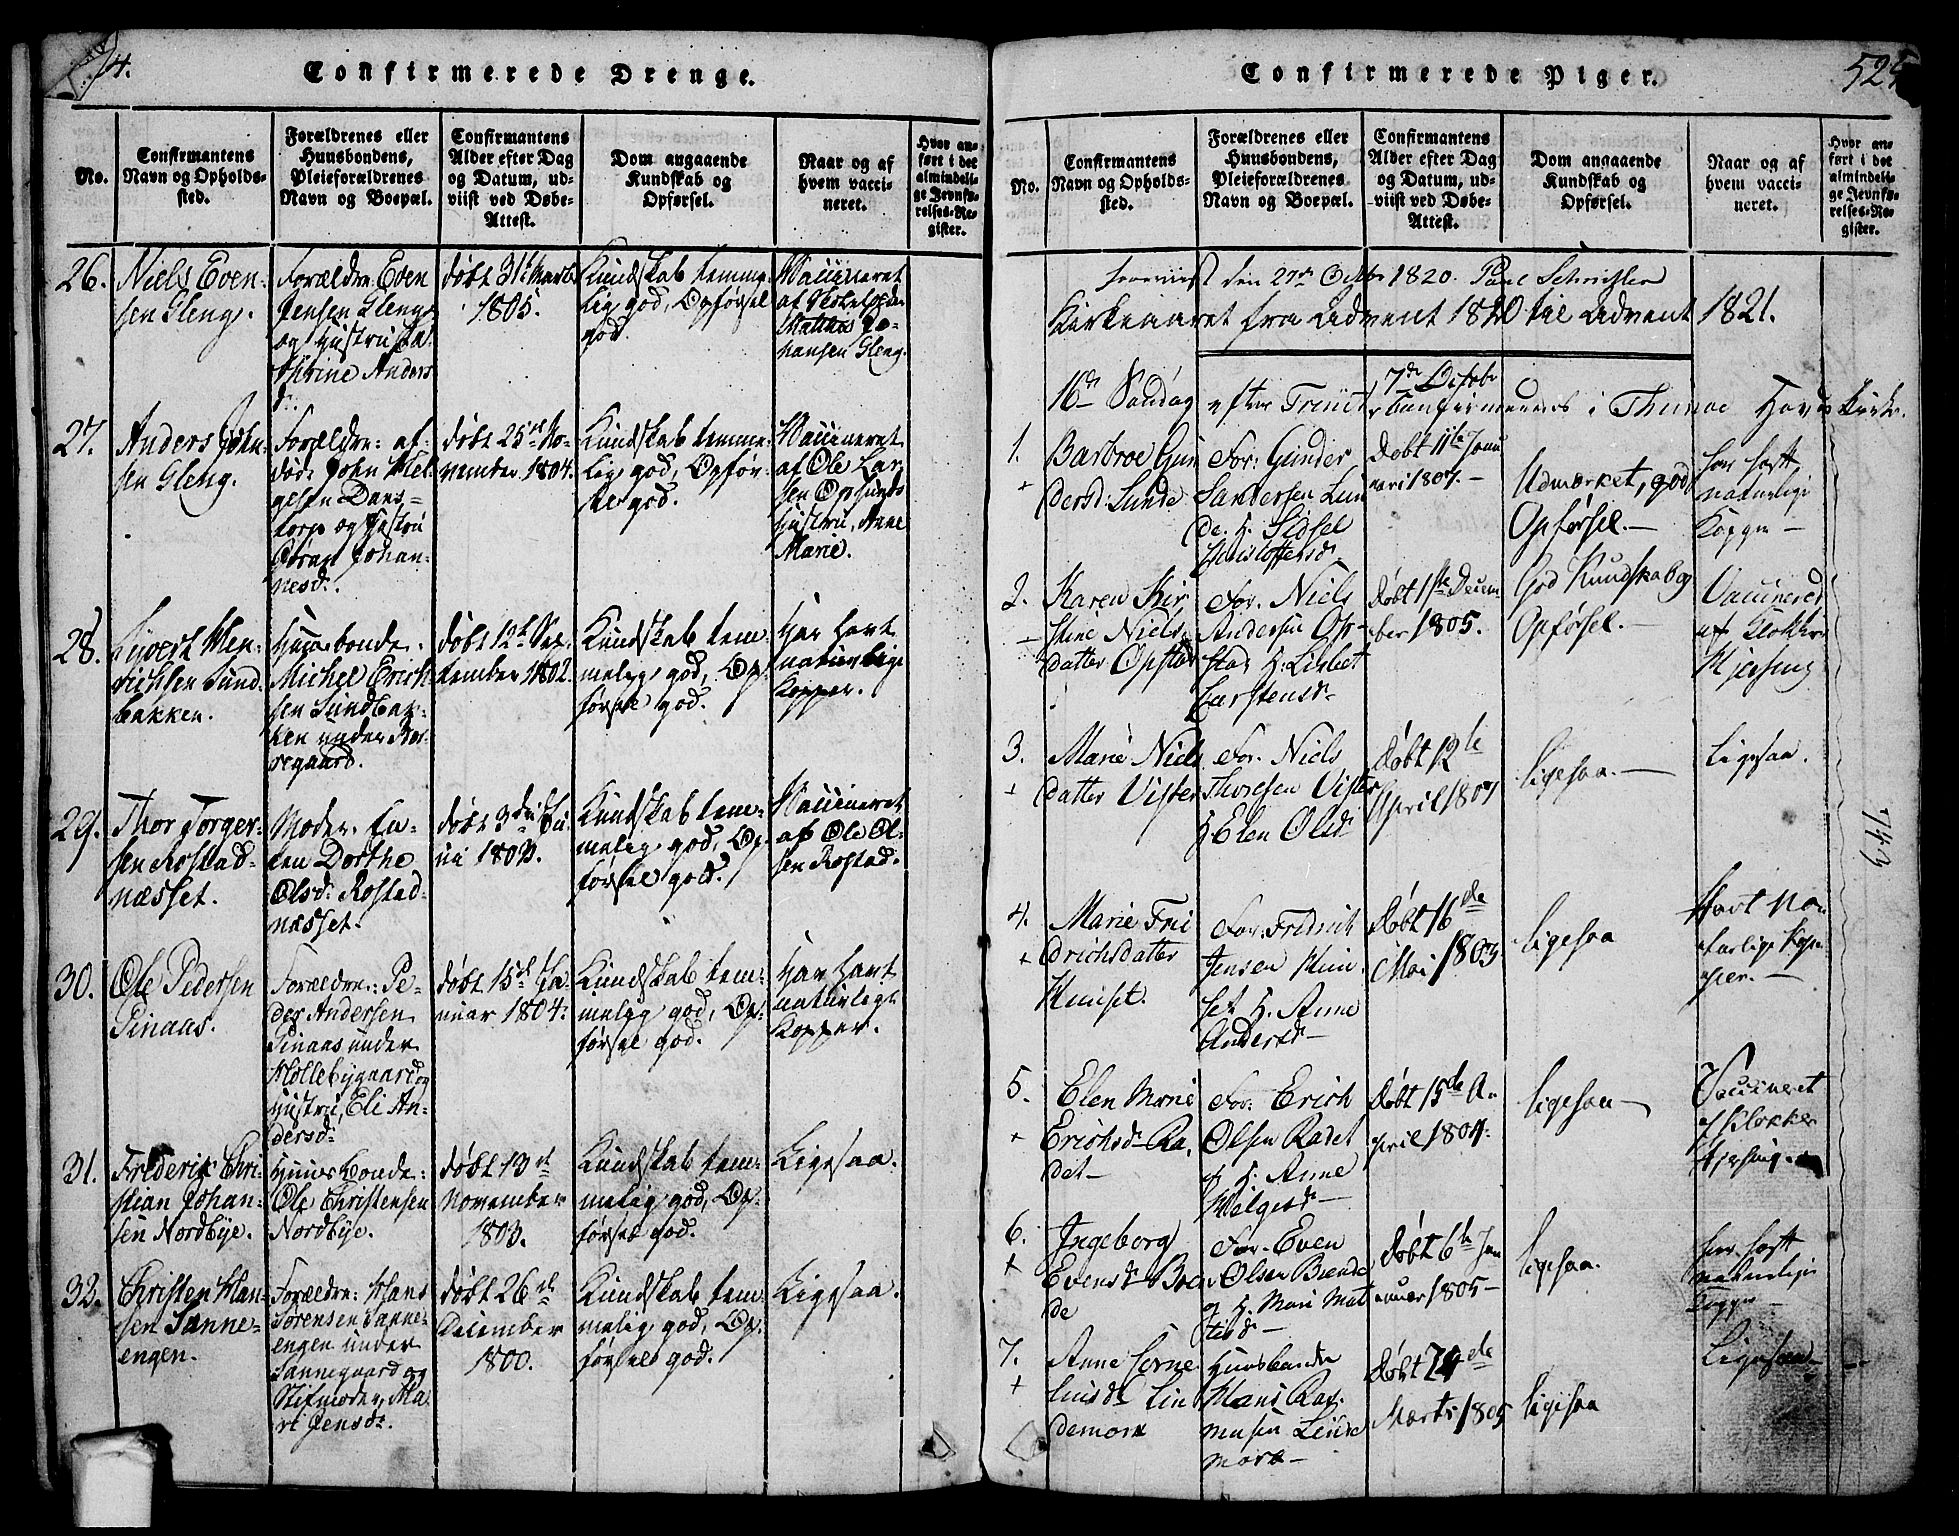 4.
Confirmerede Drenge.
No.
Confirmantens Navn og Opholds-sted.
Forældrenes eller Huusbondens, Pleieforældrenes Navn og Boepæl.
Confirmantens Alder efter Dag og Datum, ud-viist ved Døbe-Attest.
Dom angaaende Kundskab og Opførsel.
Naar og af hvem vacci-neret.
Hvor an-ført i det almindeli-ge Jevnfø-relses-Re-gister.
26.
Niels Even-
sen Gleng.
Forældre: Even
Jensen Gleng
og Hustru Ca
thrine Anders
d:
døbt 31te Marts
1805.
Kundskab temme-
lig god, Opførsel
god.
Vaccineret
af
Mathias Jo-
hansen Gleng.
27.
Anders John-
sen Gleng.
Forældre: af-
død. John Hel-
gesen Dans-
torp og Hustru
Göran Johan-
nesd:
døbt 25de No-
vember 1804.
Kundskab temme-
lig god, Opfør-
sel god.
Vaccineret
af Ole Lar
sen Opsunds
Hustru, Anne
Marie.
28.
Syvert Hen-
richsen Sund-
bakken.
Huusbonde.
Michel Erich-
sen Sundbak-
ken under Bor-
regaard.
døbt 12te Sep-
tember 1802.
Kundskab tem-
melig god, Op-
førsel god.
Har havt
naturlige
Kopper.
29.
Thor Torger-
sen Rostad-
næsset.
Moder. En-
ken Dorthe
Olsd: Rostad-
næsset.
døbt 3die Ju-
ni 1803.
Kundskab tem-
melig god, Op-
førsel god.
Vaccineret
af Ole Ol-
sen Rostad.
30.
Ole Pedersen
Pinaas.
Forældre: Pe-
der Andersen
Pinaas under
Møllebygaard og
Hustru, Eli An-
dersd:
døbt 15de Ja-
nuar 1804.
Kundskab tem-
melig god, Op-
førsel god.
Har havt
naturlige
Kopper.
31.
Frederik Chri-
stian Johan-
sen Nordbye.
Huusbonde:
Ole Christensen
Nordbye.
døbt 13de
November
1803.
Kundskab tem-
melig god, Op-
førsel god.
Ligesaa.
32.
Christen Han-
sen Sanne-
engen.
Forældre: Hans
Sørensen Sanne-
engen under
Sannegaard og
Stifmoder, Ma-
ri Jensd:
døbt 26de
December
1800.
Kundskab tem-
melig god, Op-
førsel god.
Ligesaa.
Confirmerede Piger.
525
No.
Confirmantens Navn og Opholds-sted.
Forældrenes eller Huusbondens, Pleieforældrenes Navn og Boepæl.
Confirmantens Alder efter Dag og Datum, ud-viist ved Døbe-Attest.
Dom angaaende Kundskab og Opførsel.
Naar og af hvem vacci-neret.
Hvor an-ført i det almindeli-ge Jevnfø-relses-Re-gister.
den 27de Octbr 1820. Paul
Kirkeaaret fra Advent 1820 til Advent 1821.
7de Octobr
16de Søndag efter Trinit: Confirmeredes i Thunøe Hoved Kirke.
1.
Barbroe Gun
dersd: Lunde
For: Gunder
Sandersen Lun
de. H. Sidsel
Christoffersd:
Døbt 11te Janu
ari 1807.
Udmærket, god
Opførsel.
har havt
naturlige
Kopper
2.
Karen Kir
stine Niels-
datter Opstad
For. Niels
Andersen Op-
stad H. Lisbet
Carstensd:
Døbt 1ste Decem
ber 1805.
God Kundskab og
Opførsel.
Vaccinered
af Klokker
Hjersing
3.
Marie Niels
datter Vister
For. Niels
Thoresen Vister
H Elen Olsd:
Døbt 12te
April 1807
ligesaa.
Ligesaa.
743
4.
Marie Fri
drichsdatter
Huuset.
For: Fridrich
Jensen Huu
set H. Anne
Andersd:
Døbt 16de
Mai 1803
ligesaa
Havt Na
turlige Kop
per.
5.
Elen Marie
Erichsd: Ra
det
For: Erich
Olsen Radet
og H. Anne
Helgesd:
Døbt 15de A-
pril 1804.
ligesaa
Vaccineret
af Klokker
Hjersing.
6.
Ingeborg
Evensd: Bren
de
For. Even
Olsen Brende
og H. Mari Mat
tisd:
Døbt 6te Jan
nuar 1805
ligesaa.
har havt
naturlige
Kopper
7.
Anne Lorne
Lin
demork
Huusbonde
Hans Ras-
musen Linde
mork
Døbt 24de
Marts 1805
ligesaa
Ligesaa